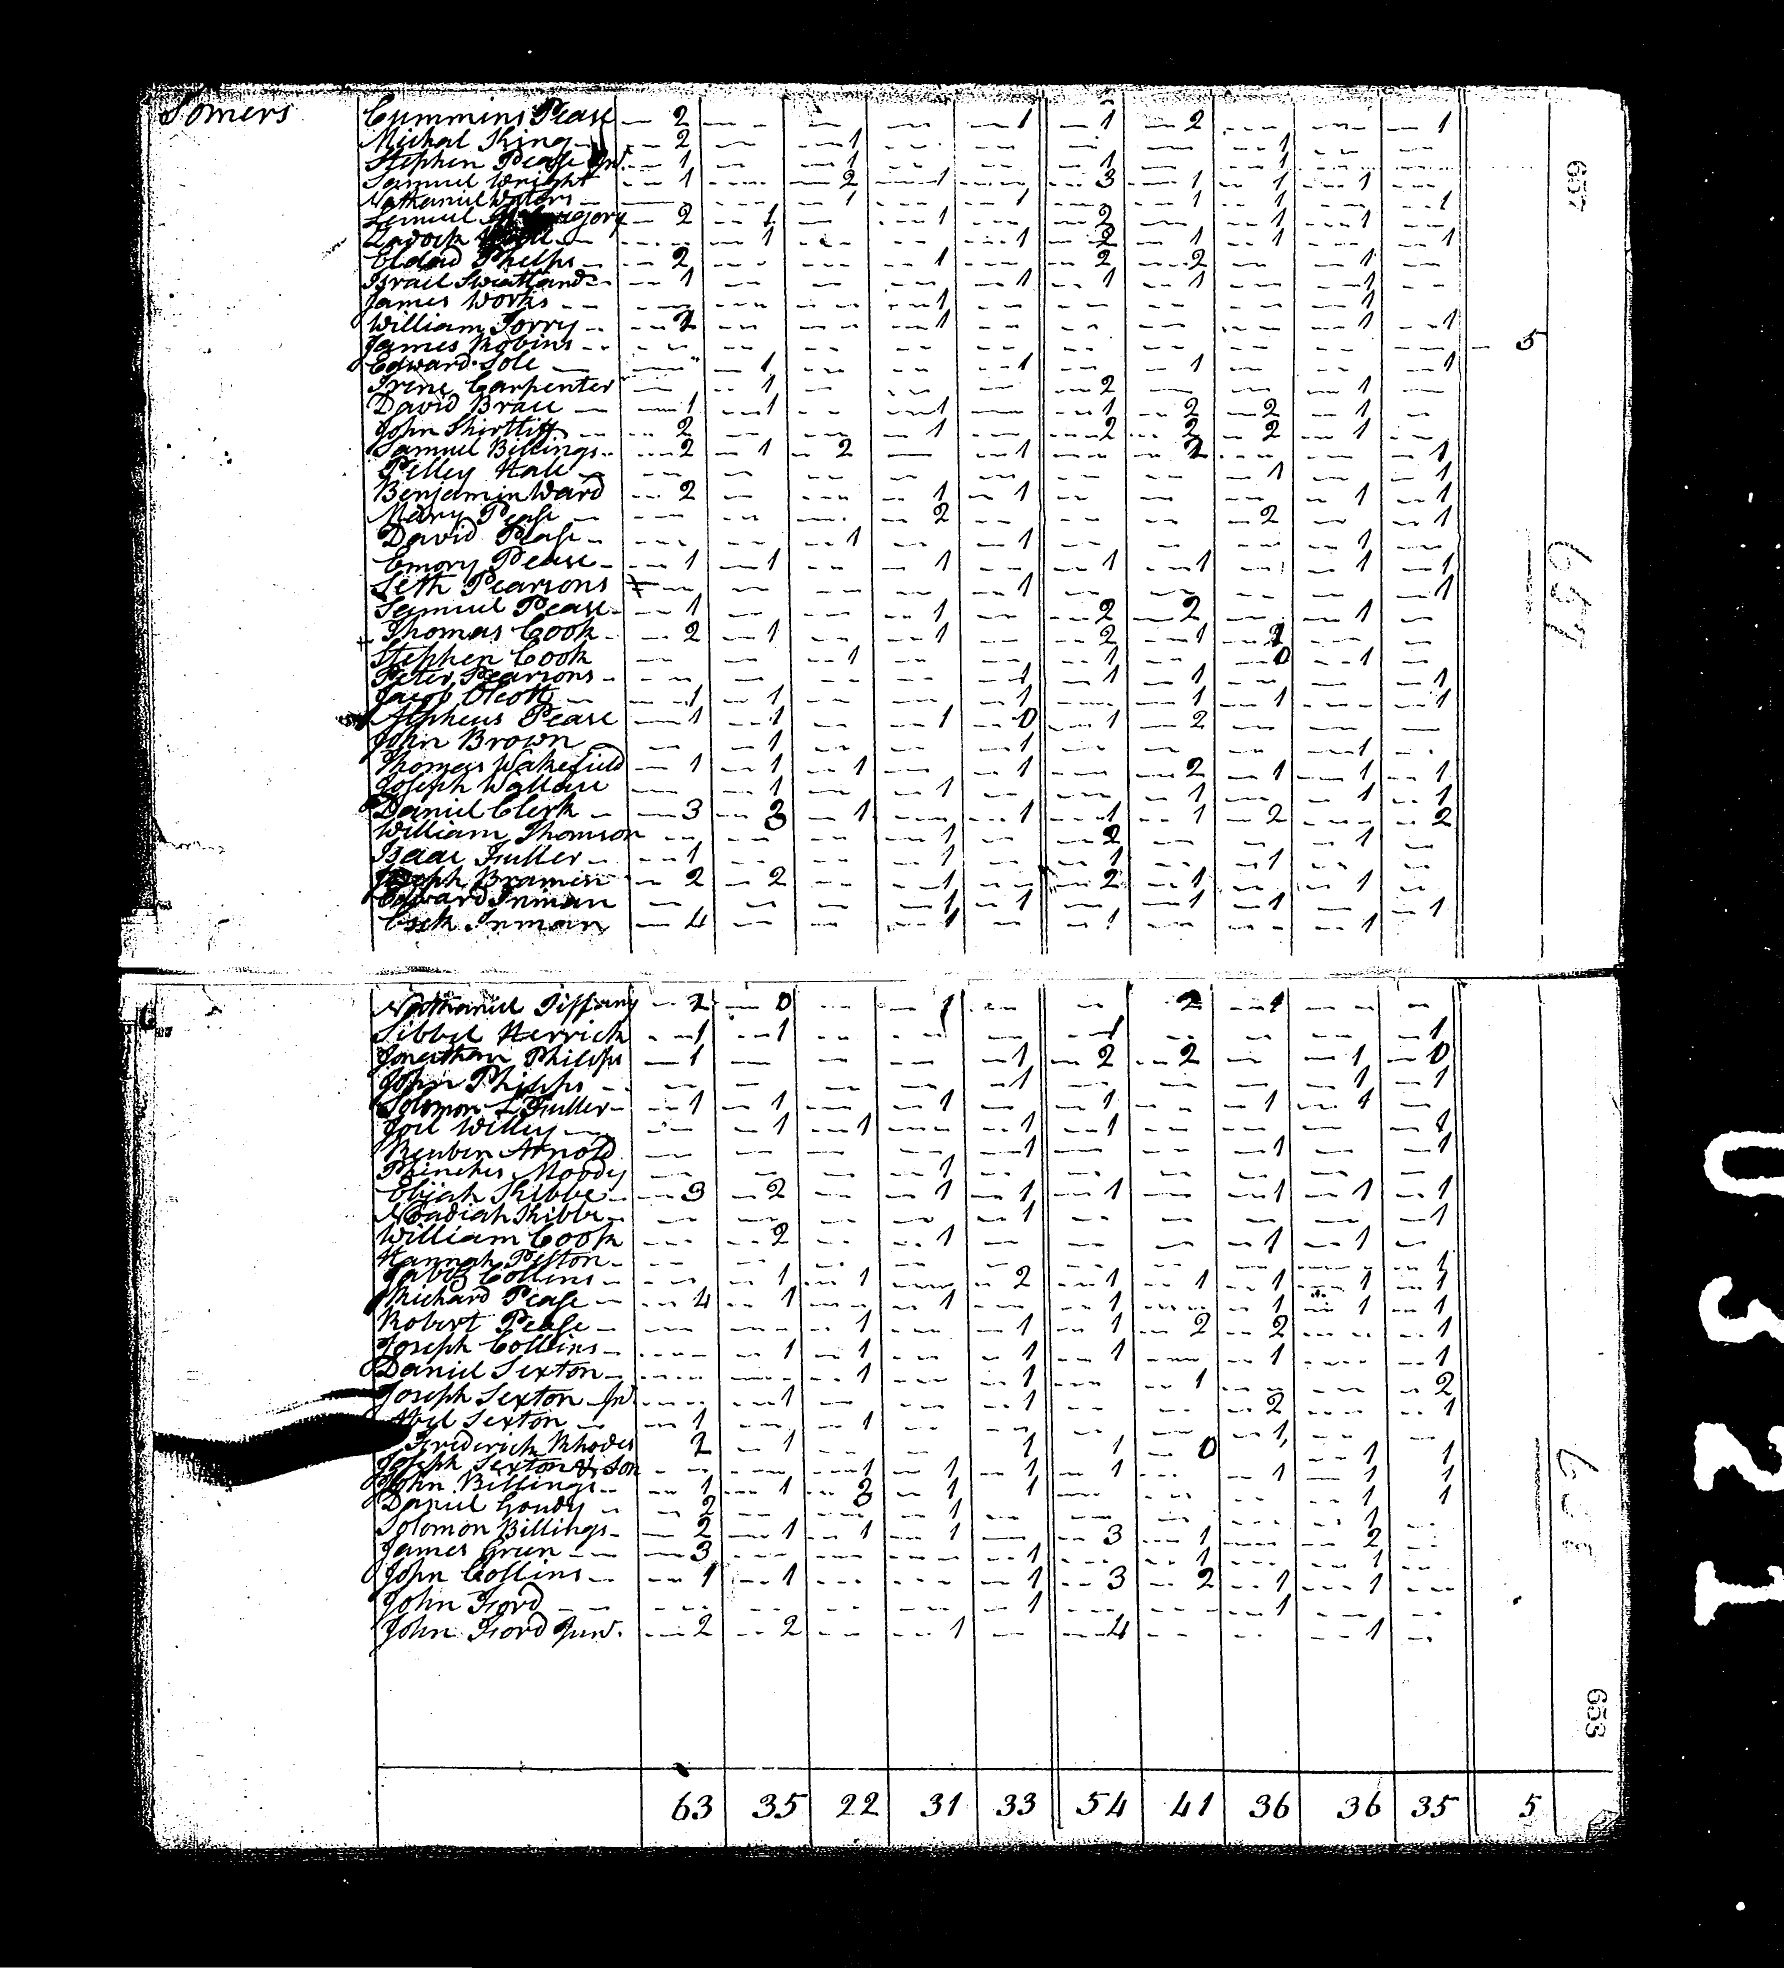 Somers
Cummins Pease — 2 — — — 1 — 1 — 2 — — 1
Michal King — 2 — 1 — — — — 1 — —
Stephen Pease Jnr. — 1 — 1 — — 1 — 1 — —
Samuel Wright — 1 — 2 — 1 — 3 — 1 — 1 — 1
Nathaniel Waters — — — 1 — 1 — 1 — 1 — 1
Lemuel — 2 — 1 — — 1 — 2 — — 1 — 1
Zadock — — 1 — — 1 — 2 — 1 — 1 — 1
Eldad Phelps — 2 — — — 1 — — 2 — 2 — — 1 —
Israel Sweatland — 1 — — — 1 — 1 — 1 — 1 —
James Works — — — — 1 — — — — 1 —
William Torry — 2 — — 1 — — — — 1 — 1
James Robins — — — — — — — — — — 5
Edward Sole — — 1 — — 1 — 1 — — 1
Irene Carpenter — 1 — — — 2 — — 1 —
David Brace — 1 — 1 — — 1 — 1 — 2 — 2 — 1 —
John Shirtliff — 2 — — 1 — 2 — 2 — 2 — 1 —
Samuel Billings — 2 — 1 — 2 — — 1 — 2 — — 1
Pelley Hall — — — — — — — 1 — 1
Benjamin Ward — 2 — — 1 — 1 — — — 1 — 1
Mary Pease — — — 2 — — — 2 — 1
David Pease — — — 1 — 1 — — — 1 —
Emory Pease — 1 — 1 — — 1 — 1 — 1 — 1 — 1
Seth Pearsons — — — — 1 — — — — 1
Samuel Pease — 1 — — 1 — 2 — 2 — — 1 —
Thomas Cook — 2 — 1 — — 1 — 2 — 1 — 2 — —
Stephen Cook — — 1 — — 1 — 0 — 1 —
Peter Pearsons — — — — 1 — 1 — 1 — — 1
Jacob Olcott — 1 — 1 — — 1 — 1 — 1 — 1
Alpheus Pease — 1 — 1 — — 1 — 0 — 1 — 2 — — —
John Brown — — 1 — — 1 — — — 1 —
Thomas Wakefield — 1 — 1 — 1 — — 1 — — 2 — 1 — 1 — 1
Joseph Wallace — — 1 — — 1 — — 1 — — 1 — 1
Daniel Clerk — 3 — 3 — 1 — — 1 — 1 — 1 — 2 — — 2
William Thomson — — — 1 — 2 — — 1 —
Isaac Fuller — 1 — — 1 — 1 — — 1 — —
Joseph Bramen — 2 — 2 — — 1 — 2 — 1 — — 1 —
Edward Inman — — — 1 — 1 — — 1 — 1 — — 1
Esek Inman — 4 — — 1 — 1 — — — 1
657
657
Nathaniel Tiffany — 2 — 0 — — 1 — — 2 — 1 — —
Sibbel Herrick — 1 — 1 — — — 1 — — — 1
Jonathan Philips — 1 — — — 1 — 2 — 2 — — 1 — 0
John Philips — — — — 1 — — — 1 — 1
Solomon L Fuller — 1 — 1 — — 1 — — 1 — — 1 — 1 —
Joel Willey — — 1 — 1 — — 1 — 1 — — — 1
Reuben Arnold — — — — 1 — — 1 — 1
Phinehes Moody — — — 1 — — — — — —
Elijah Kibbe — 3 — 2 — — 1 — 1 — 1 — — 1 — 1 — 1
Noadiah Kibbe — — — — 1 — — — — 1
William Cook — — 2 — — 1 — — — 1 — 1 —
Hannah Peston — — — — — — — — — 1
Jabez Collins — — 1 — 1 — — 2 — 1 — 1 — 1 — 1 — 1
Richard Pease — 4 — 1 — — 1 — — 1 — — 1 — 1 — 1
Robert Pease — — — 1 — — 1 — 1 — 2 — 2 — — 1
Joseph Collins — — 1 — 1 — — 1 — 1 — — 1 — — 1
Daniel Sexton — — — 1 — — 1 — — 1 — — — 2
Joseph Sexton Jnr. — — 1 — — 1 — — 2 — — 1
Abel Sexton — 1 — — 1 — — — — 1 — —
Frederick Rhodes 2 — 1 — — 1 1 — 0 — 1 1
Joseph Sexton & Son — — — 1 — 1 — 1 — 1 — — 1 — 1 1
John Billings — 1 — 1 — 3 — 1 1 — — — 1 1
Daniel Goudy — 2 — — 1 — — — — 1 —
Solomon Billings — 2 — 1 — 1 — 1 — — 3 — 1 — — 2 —
James Green — 3 — — — — 1 — — 1 — — 1 —
John Collins — 1 — 1 — — — 1 — 3 — 2 — 1 — 1 —
John Ford — — — — — 1 — — 1 — —
John Ford Junr. — 2 — 2 — — 1 — 4 — — — 1 —
63 35 22 31 33 54 41 36 36 35 5
658
0321